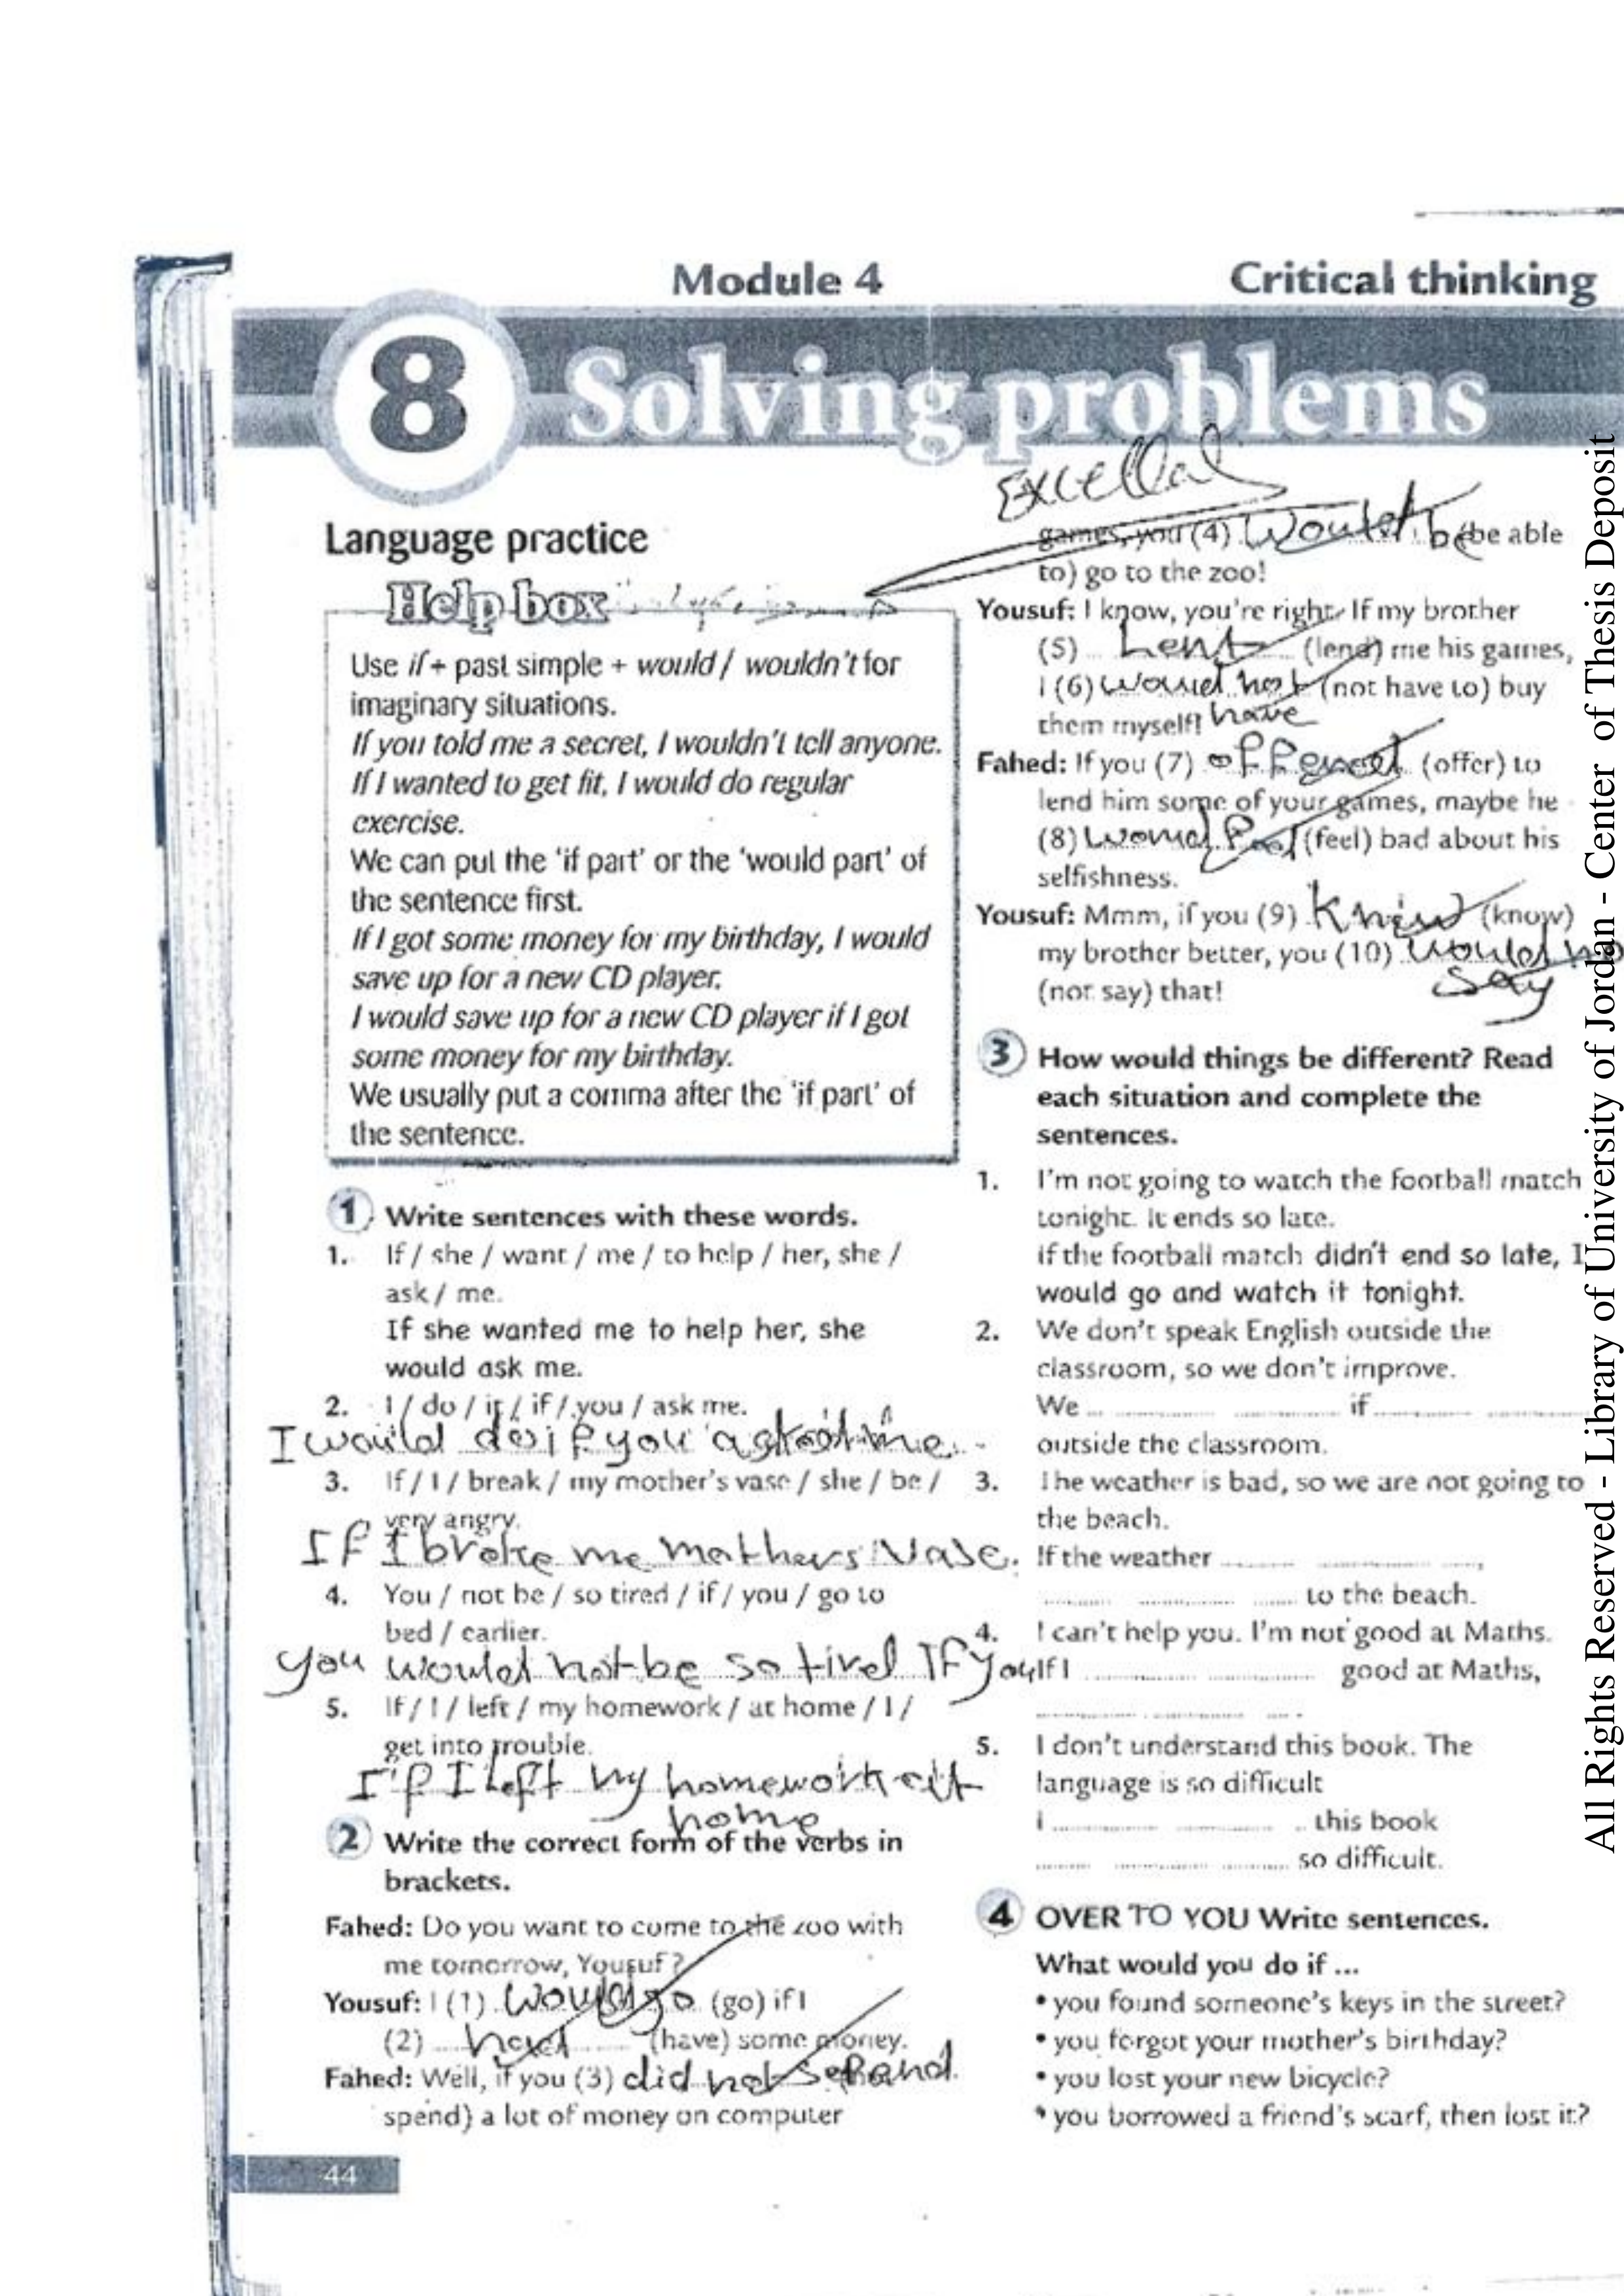 Module 4
Critical thinking
8 Solving problems
Language practice
Help box
Use if + past simple + would / wouldn't for
imaginary situations.
If you told me a secret, I wouldn't tell anyone.
If I wanted to get fit, I would do regular
exercise.
We can put the 'if part' or the 'would part' of
the sentence first.
If I got some money for my birthday, I would
save up for a new CD player.
I would save up for a new CD player if I got
some money for my birthday.
We usually put a comma after the 'if part' of
the sentence.
1 Write sentences with these words.
1. If / she / want / me / to help / her, she /
ask / me.
If she wanted me to help her, she
would ask me.
2. I / do / it / if / you / ask me.
I would do if you me
3. If / I / break / my mother's vase / she / be /
very angry.
If I broke me mothers vase.
4. You / not be / so tired / if / you / go to
bed / earlier.
you would not be so tired If you
5. If / I / left / my homework / at home / I /
get into trouble.
If I Left my homework at
home
2 Write the correct form of the verbs in
brackets.
Fahed: Do you want to come to the zoo with
me tomorrow, Yousuf?
Yousuf: I (1) would go (go) if I
(2) had (have) some money.
Fahed: Well, if you (3) did not spend
spend) a lot of money on computer
44
games, you (4) would be (be able
to) go to the zoo!
Yousuf: I know, you're right. If my brother
(5) Lent (lend) me his games,
I (6) would not (not have to) buy
them myself! have
Fahed: If you (7) offered (offer) to
lend him some of your games, maybe he
(8) would feel (feel) bad about his
selfishness.
Yousuf: Mmm, if you (9) Knew (know)
my brother better, you (10) would no
say
(not say) that!
3 How would things be different? Read
each situation and complete the
sentences.
1. I'm not going to watch the football match
tonight. It ends so late.
If the football match didn't end so late, I
would go and watch it tonight.
2. We don't speak English outside the
classroom, so we don't improve.
We ... ............ ............ if ............ ............
outside the classroom.
3. The weather is bad, so we are not going to
the beach.
If the weather ............ ............ ....,
............ ............ ...... to the beach.
4. I can't help you. I'm not good at Maths.
If I ............ ............ good at Maths,
............ ............ .....
5. I don't understand this book. The
language is so difficult
I ............ ............ .. this book
........ ............ ............ so difficult.
4 OVER TO YOU Write sentences.
What would you do if ...
• you found someone's keys in the street?
• you forgot your mother's birthday?
• you lost your new bicycle?
• you borrowed a friend's scarf, then lost it?
All Rights Reserved - Library of University of Jordan - Center of Thesis Deposit